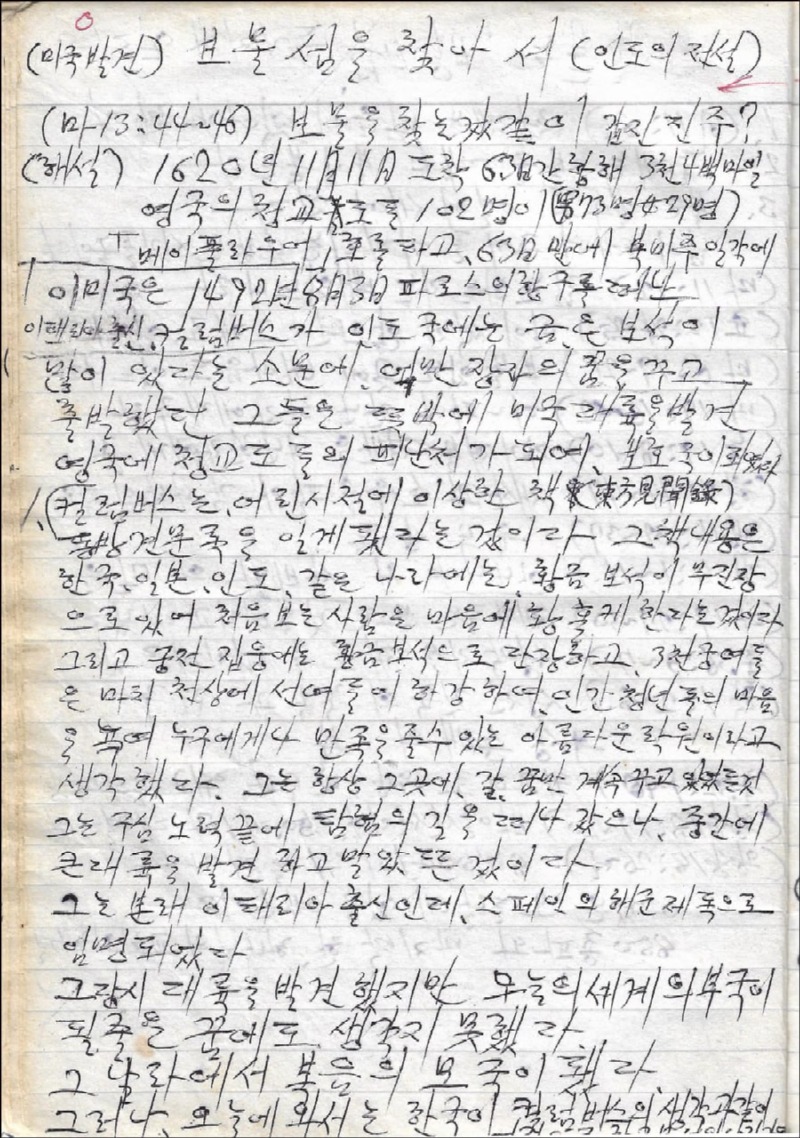 (미국발견) 보물섬을 찾아서 (인도의 전설)
(마-13:44~46) 보물을 찾는것같이 값진진주?
(해설) 1620년 11月11日 도착 63日간 항해 3천4백마일
영국의 청교도들 102명이 (男73명 女29명)
「메이플라우어」호를타고, 63日만에 북미주일각에
이미국은 1492년8月3日 파로스의 항구를 떠난
이태리아 출신, 컬럼버스가 인도국에는 금은보석이
많이 있다는 소문에, 억만 장자의 꿈을 꾸고
출발했던 그들은 뜻밖에 미국대륙을발견
영국에 청교도들의 피난처가 되여, 보호국이되였다
1, (컬럼버스는, 어린시절에 이상한 책 (東方見聞錄)
동방견문록을 읽게 됐다는것이다 그책내용은
한국, 일본, 인도, 같은 나라에는, 황금보석이 무진장
으로있어 처음보는사람은 마음에 황홀케 한다는것이다
그리고 궁전 집웅에는 황금보석으로 단장하고, 3천궁여들
은 마치 천상에 선여들이 하강하여, 인간청년들의 마음
을 녹여 누구에게나 만족을줄수있는 아름다운 락원이라고
생각했다. 그는 항상 그곳에, 갈, 꿈만 계속 꾸고 있었든것
그는 구심 노력 끝에 탐험의 길을 떠나 갔으나, 중간에
큰대륙을 발견하고 말았든것이다
그는 본래 이태리아 출신인데, 스페인의 해군제독으로
임명되었다
그당시 대륙을 발견했지만 오늘의 세계의 부국이
될줄은 꿈에도 생각지 못했다
그 나라에서 복음의 모국이 됐다
그러나, 오늘에 와서는 한국이 컬럼버스의 생각과같이